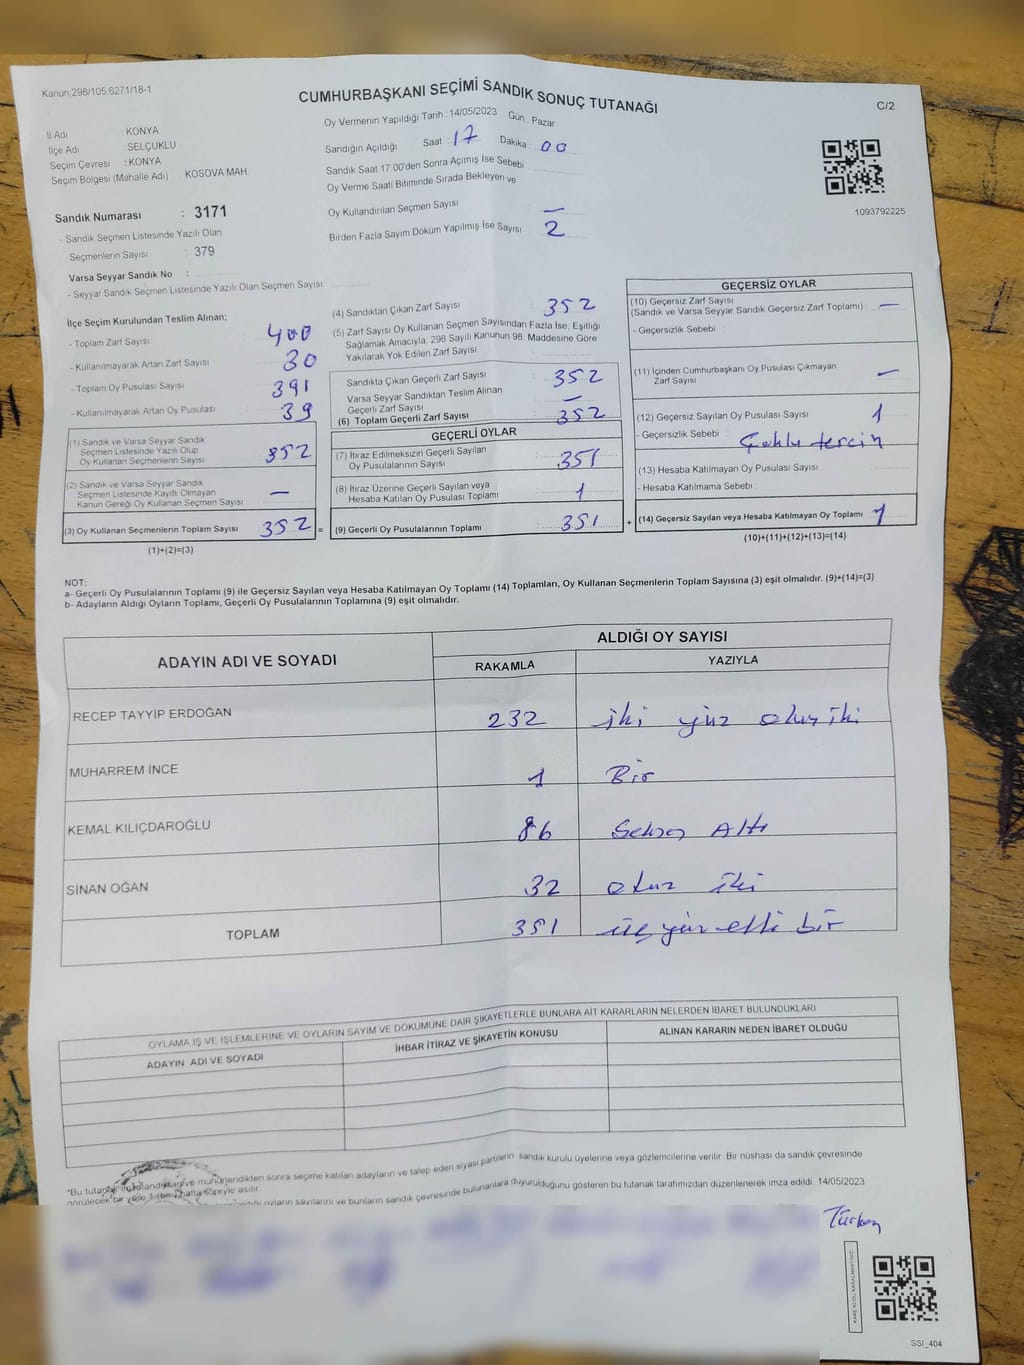 Kanun:298/105;6271/18-1
CUMHURBAŞKANI SEÇİMİ SANDIK SONUÇ TUTANAĞI
C/2
İl Adı : KONYA
İlçe Adı : SELÇUKLU
Seçim Çevresi : KONYA
Seçim Bölgesi (Mahalle Adı) KOSOVA MAH
Sandık Numarası : 3171
- Sandık Seçmen Listesinde Yazılı Olan
Seçmenlerin Sayısı : 379
Varsa Seyyar Sandık No :
- Seyyar Sandık Seçmen Listesinde Yazılı Olan Seçmen Sayısı
Oy Vermenin Yapıldığı Tarih : 14/05/2023 Gün : Pazar
Sandığın Açıldığı Saat 17 Dakika 00
Sandık Saat 17.00'den Sonra Açımış İse Sebebi
Oy Verme Saati Bitiminde Sırada Bekleyen ve
Oy Kullandırılan Seçmen Sayısı —
Birden Fazla Sayım Döküm Yapılmış İse Sayısı 2
1093792225
İlçe Seçim Kurulundan Teslim Alınan;
- Toplam Zarf Sayısı 400
- Kullanılmayarak Artan Zarf Sayısı 30
- Toplam Oy Pusulası Sayısı 391
- Kullanılmayarak Artan Oy Pusulası 39
(1) Sandık ve Varsa Seyyar Sandık
Seçmen Listesinde Yazılı Olup
Oy Kullanan Seçmenlerin Sayısı 352
(2) Sandık ve Varsa Seyyar Sandık
Seçmen Listesinde Kayıtlı Olmayan
Kanun Gereği Oy Kullanan Seçmen Sayısı —
(3) Oy Kullanan Seçmenlerin Toplam Sayısı 352 =
(1)+(2)=(3)
(4) Sandıktan Çıkan Zarf Sayısı 352
(5) Zarf Sayısı Oy Kullanan Seçmen Sayısından Fazla İse, Eşitliği
Sağlamak Amacıyla, 298 Sayılı Kanunun 98. Maddesine Göre
Yakılarak Yok Edilen Zarf Sayısı
Sandıkta Çıkan Geçerli Zarf Sayısı : 352
Varsa Seyyar Sandıktan Teslim Alınan
Geçerli Zarf Sayısı —
(6) Toplam Geçerli Zarf Sayısı : 352
GEÇERLİ OYLAR
(7) İtiraz Edilmeksizin Geçerli Sayılan
Oy Pusulalarının Sayısı : 351
(8) İtiraz Üzerine Geçerli Sayılan veya
Hesaba Katılan Oy Pusulası Toplamı : 1
(9) Geçerli Oy Pusulalarının Toplamı : 351 +
GEÇERSİZ OYLAR
(10) Geçersiz Zarf Sayısı
(Sandık ve Varsa Seyyar Sandık Geçersiz Zarf Toplamı) : —
- Geçersizlik Sebebi :
(11) İçinden Cumhurbaşkanı Oy Pusulası Çıkmayan
Zarf Sayısı : —
(12) Geçersiz Sayılan Oy Pusulası Sayısı : 1
- Geçersizlik Sebebi : Çoklu tercih
(13) Hesaba Katılmayan Oy Pusulası Sayısı
- Hesaba Katılmama Sebebi :
(14) Geçersiz Sayılan veya Hesaba Katılmayan Oy Toplamı 1
(10)+(11)+(12)+(13)=(14)
NOT:
a- Geçerli Oy Pusulalarının Toplamı (9) ile Geçersiz Sayılan veya Hesaba Katılmayan Oy Toplamı (14) Toplamları, Oy Kullanan Seçmenlerin Toplam Sayısına (3) eşit olmalıdır. (9)+(14)=(3)
b- Adayların Aldığı Oyların Toplamı, Geçerli Oy Pusulalarının Toplamına (9) eşit olmalıdır.
ADAYIN ADI VE SOYADI
ALDIĞI OY SAYISI
RAKAMLA YAZIYLA
RECEP TAYYİP ERDOĞAN 232 iki yüz otuz iki
MUHARREM İNCE 1 Bir
KEMAL KILIÇDAROĞLU 86 Seksen Altı
SİNAN OĞAN 32 otuz iki
TOPLAM 351 üç yüz elli bir
OYLAMA İŞ VE İŞLEMLERİNE VE OYLARIN SAYIM VE DÖKÜMÜNE DAİR ŞİKAYETLERLE BUNLARA AİT KARARLARIN NELERDEN İBARET BULUNDUKLARI
ADAYIN ADI VE SOYADI İHBAR İTİRAZ VE ŞİKAYETİN KONUSU ALINAN KARARIN NEDEN İBARET OLDUĞU
*Bu tutanak ve mühürlendikten sonra seçime katılan adayların ve talep eden siyasi partilerin sandık kurulu üyelerine veya gözlemcilerine verilir. Bir nüshası da sandık çevresinde
görülecek bir yere 1 hafta süreyle asılır.
oyların sayılarını ve bunların sandık çevresinde bulunanlara duyurulduğunu gösteren bu tutanak tarafımızdan düzenlenerek imza edildi. 14/05/2023
SSI_404